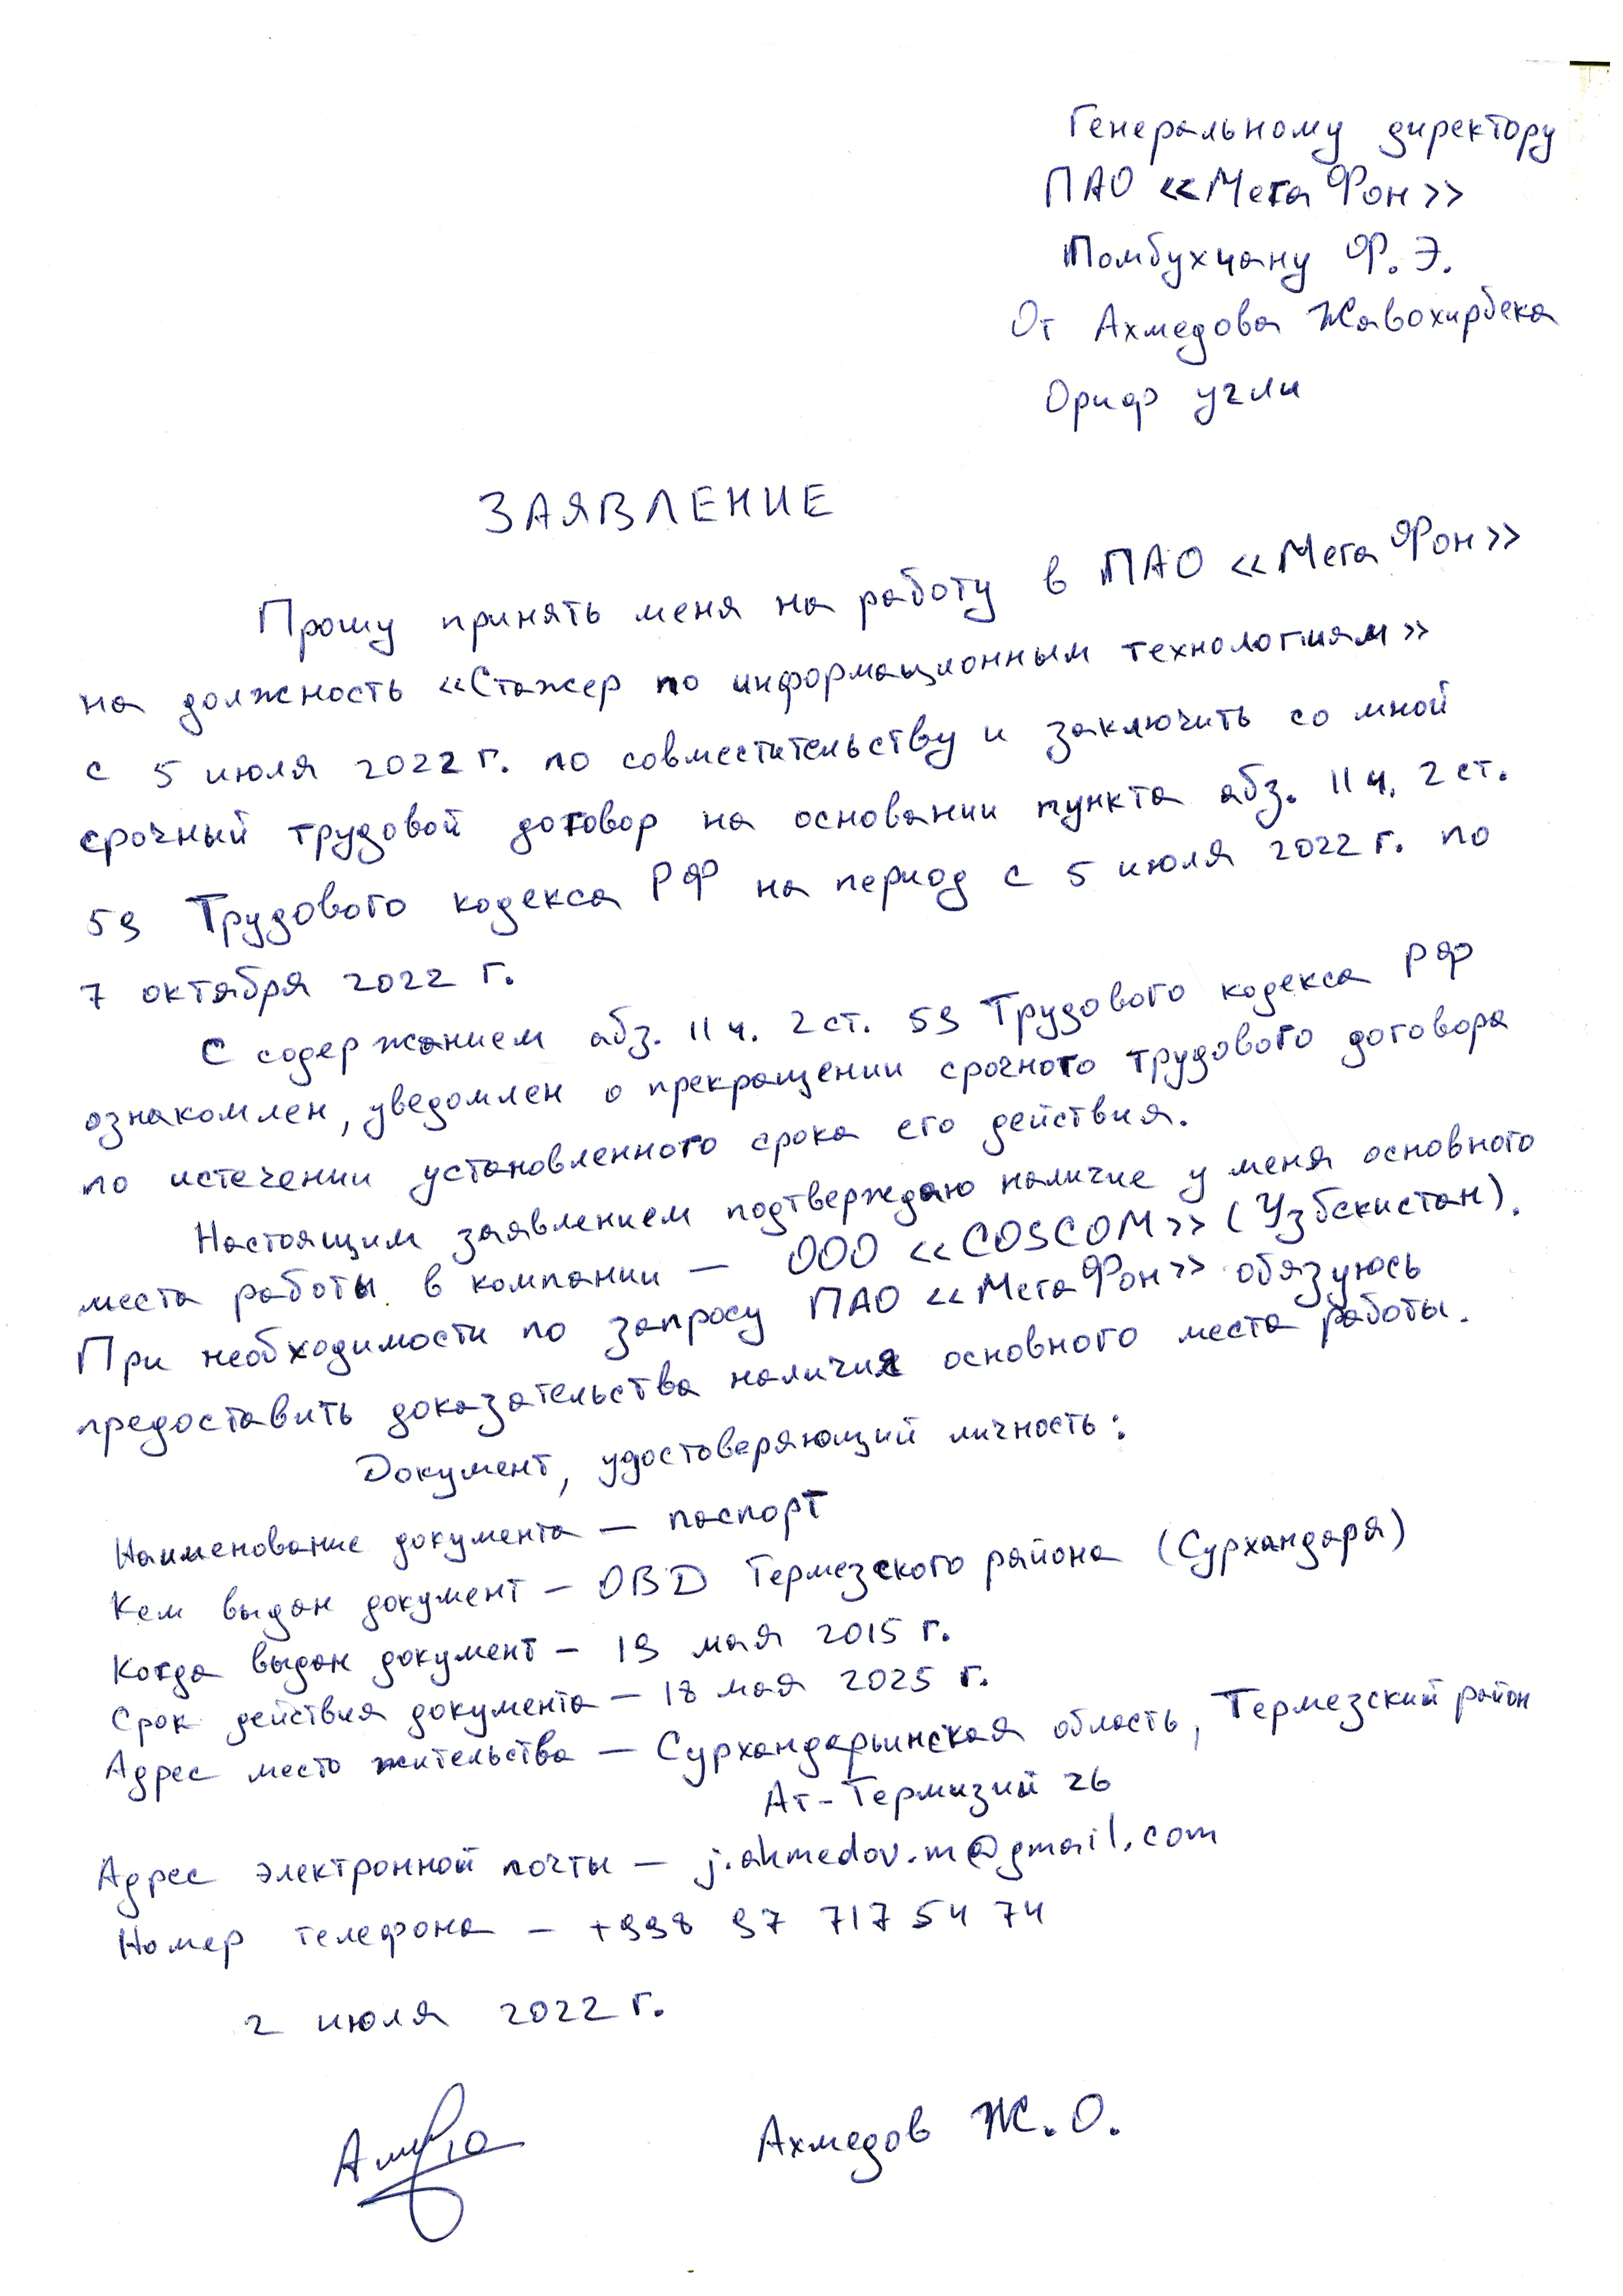 Генеральному директору
ПАО «МегаФон»
Томбухчану Ф. Э.
От Ахмедова Жавохирбека
Ориф угли
ЗАЯВЛЕНИЕ
Прошу принять меня на работу в ПАО «МегаФон»
на должность «Стажер по информационным технологиям»
с 5 июля 2022 г. по совместительству и заключить со мной
срочный трудовой договор на основании пункта абз. 11 ч. 2 ст.
59 Трудового кодекса РФ на период с 5 июля 2022 г. по
7 октября 2022 г.
С содержанием абз. 11 ч. 2 ст. 59 Трудового кодекса РФ
ознакомлен, уведомлен о прекращении срочного трудового договора
по истечении установленного срока его действия.
Настоящим заявлением подтверждаю наличие у меня основного
места работы в компании — ООО «COSCOM» (Узбекистан).
При необходимости по запросу ПАО «МегаФон» обязуюсь
предоставить доказательства наличия основного места работы.
Документ, удостоверяющий личность:
Наименование документа — паспорт
Кем выдан документ — ОВД Термезского района (Сурхандаря)
Когда выдан документ — 19 мая 2015 г.
Срок действия документа — 18 мая 2025 г.
Адрес место жительства — Сурхандарьинская область, Термезский район
Ат-Термизий 26
Адрес электронной почты — j.ahmedov.m@gmail.com
Номер телефона — +998 97 717 54 74
2 июля 2022 г.
Ахмедов Ж. О.